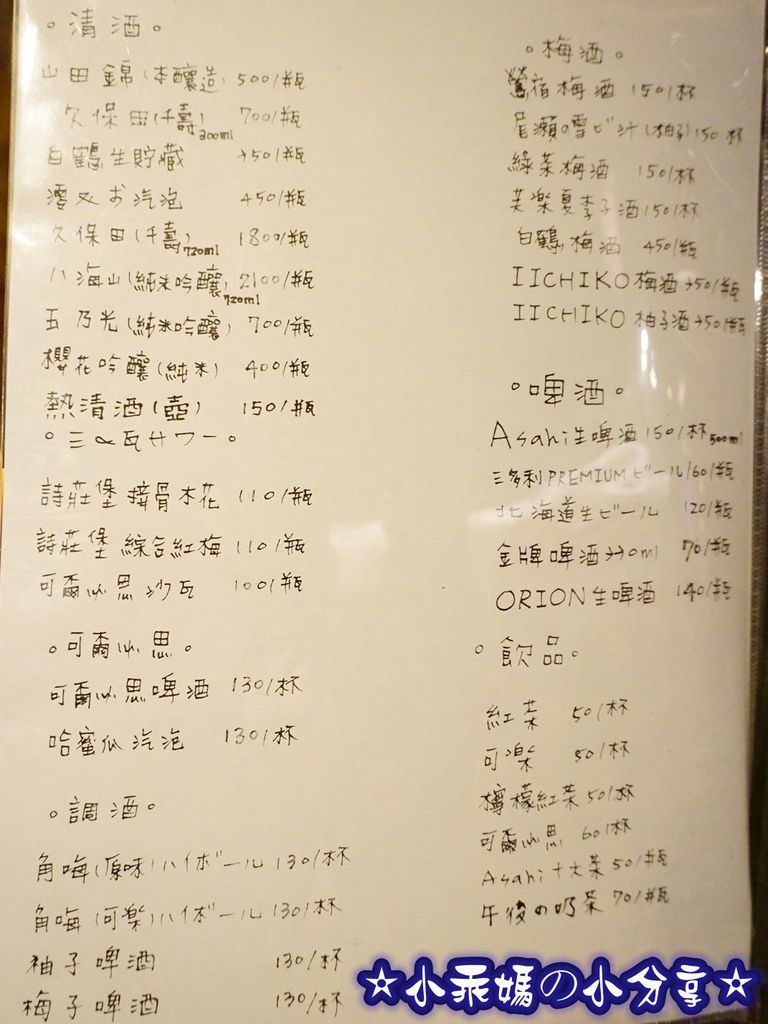 。清酒。
山田錦(本釀造) 500/瓶
久保田(千壽)300ml 700/瓶
白鶴生貯藏 350/瓶
澪又お汽泡 450/瓶
久保田(千壽)720ml 1800/瓶
八海山(純米吟釀)720ml 2100/瓶
五乃光(純米吟釀) 700/瓶
櫻花吟釀(純米) 400/瓶
熱清酒(壺) 150/瓶
サワー。
詩莊堡接骨木花 110/瓶
詩莊堡綜合紅梅 110/瓶
可爾必思沙瓦 100/瓶
。可爾必思。
可爾必思啤酒 130/杯
哈蜜瓜汽泡 130/杯
。調酒。
角嗨(原味)ハイボール 130/杯
角嗨(可樂)ハイボール 130/杯
柚子啤酒 130/杯
梅子啤酒 130/杯
。梅酒。
鶯宿梅酒 150/杯
尾瀨の雪ど汁(柚子)150 杯
綠茶梅酒 150/杯
芙樂夏李子酒 150/杯
白鶴梅酒 450/瓶
IICHIKO梅酒 350/瓶
IICHIKO 柚子酒 350/瓶
。啤酒。
Asahi生啤酒 150/杯500ml
三多利PREMIUMビール160/瓶
北海道生ビール 120/瓶
金牌啤酒330ml 70/瓶
ORION生啤酒 140/瓶
。飲品。
紅茶 50/杯
可樂 50/杯
檸檬紅茶 50/杯
可爾必思 60/杯
Asahi十六茶 50/瓶
午後の奶茶 70/瓶
☆小乖媽の小分享☆